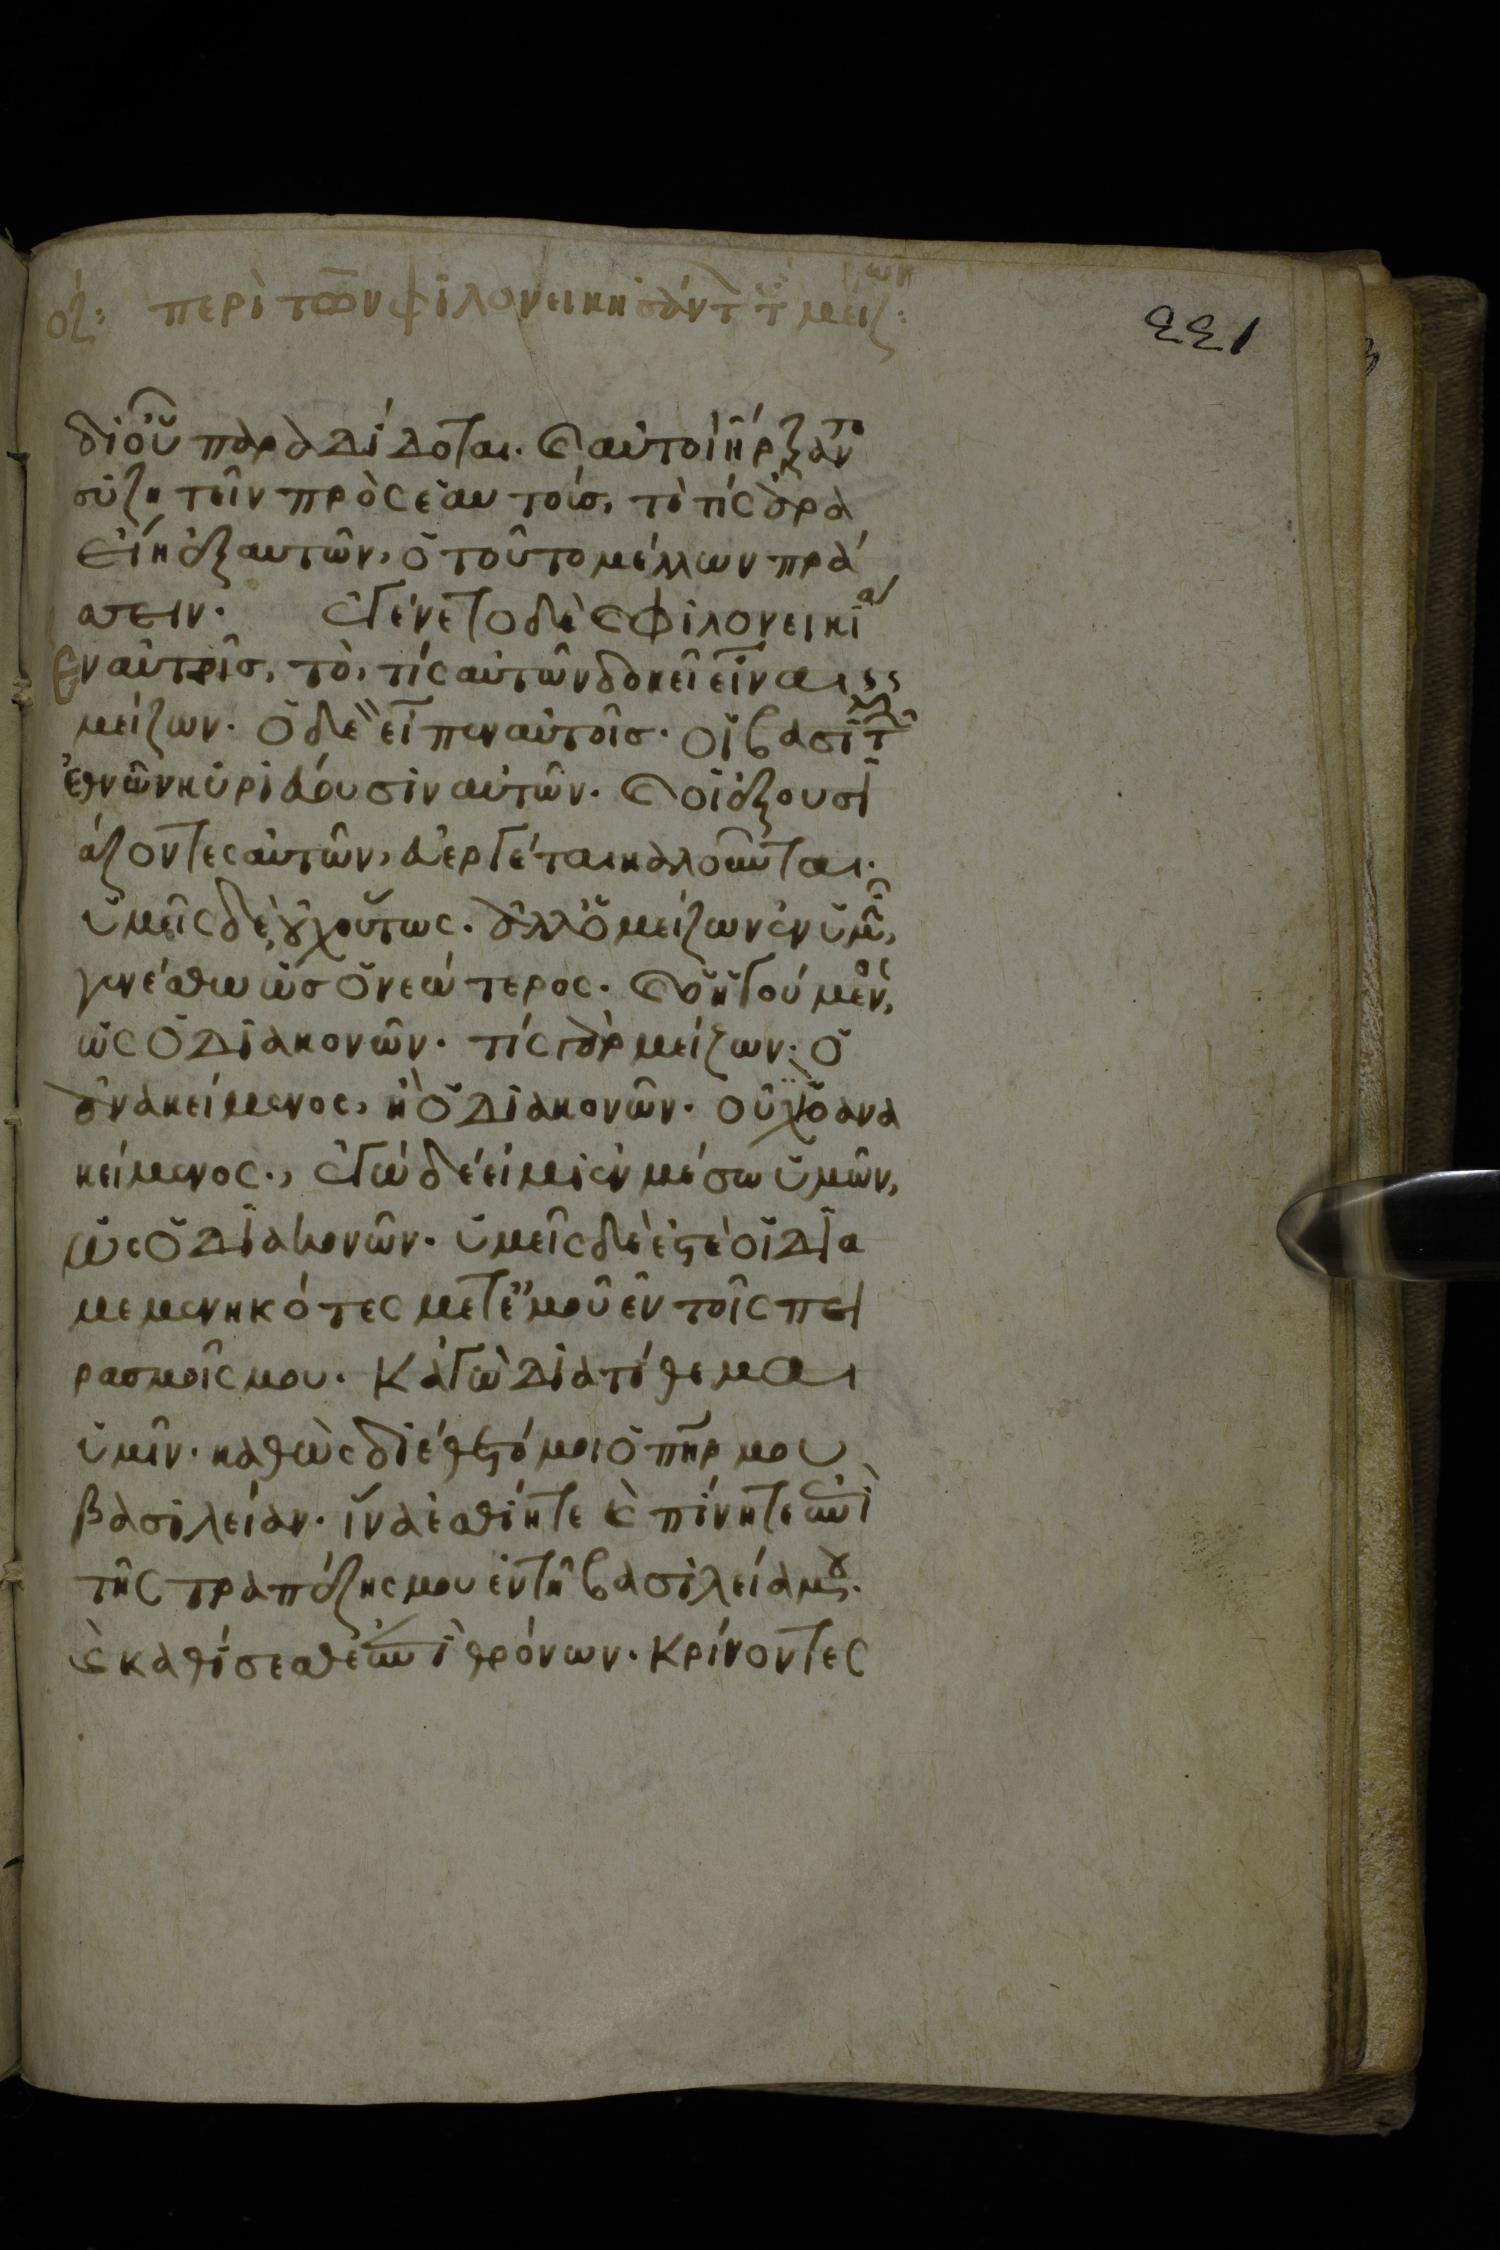 οζ: περὶ τῶν φιλονεικησάντ τ μείζ:
133
δι' οὗ παραδίδοται. καὶ αὐτοὶ ἤρξαντο
συζητεῖν πρὸς ἑαυτοὺς, τὸ τίς ἄρα
εἴη ἐξ αυτῶν, ὁ τοῦτο μέλλων πρά
σσειν. ἐγένετο δὲ καὶ φιλονεικία
ἐν αὐτοῖς, τὸ, τίς αὐτῶν δοκεῖ εἶναι
μείζων. ὁ δὲ εἶπεν αὐτοῖς. οἱ βασιλεῖς τῶν
ἐθνῶν κυριεύουσιν αὐτῶν. καὶ οἱ ἐξουσι
άζοντες αὐτῶν, εὐεργέται καλοῦνται.
ὑμεῖς δὲ οὐχ οὕτως. ἀλλ' ὁ μείζων ἐν ὑμῖν,
γενέσθω ὡσ ὁ νεώτερος. καὶ ὁ ἡγούμενος,
ὡς ὁ διακονῶν. τίς γὰρ μείζων. ὁ
ἀνακείμενος, ἢ ὁ διακονῶν. οὐχὶ ὁ ανα
κείμενος., ἐγὼ δέ εἰμι ἐν μέσω ὑμῶν,
ὡς ὁ διακονῶν. ὑμεῖς δὲ ἐστὲ οἱ δια
μεμενηκότες μετ' ἐμοῦ ἐν τοῖς πει
ρασμοῖς μου. Κἀγὼ διατίθεμαι
ὑμῖν. καθὼς διέθετό μοι ὁ πηρ μου
βασιλείαν. ἵνα ἐσθίητε καὶ πίνητε ἐπὶ
τῆς τραπέζης μου ἐν τῇ βασιλεία μου.
καὶ καθίσεσθε ἐπὶ θρόνων. κρίνοντες